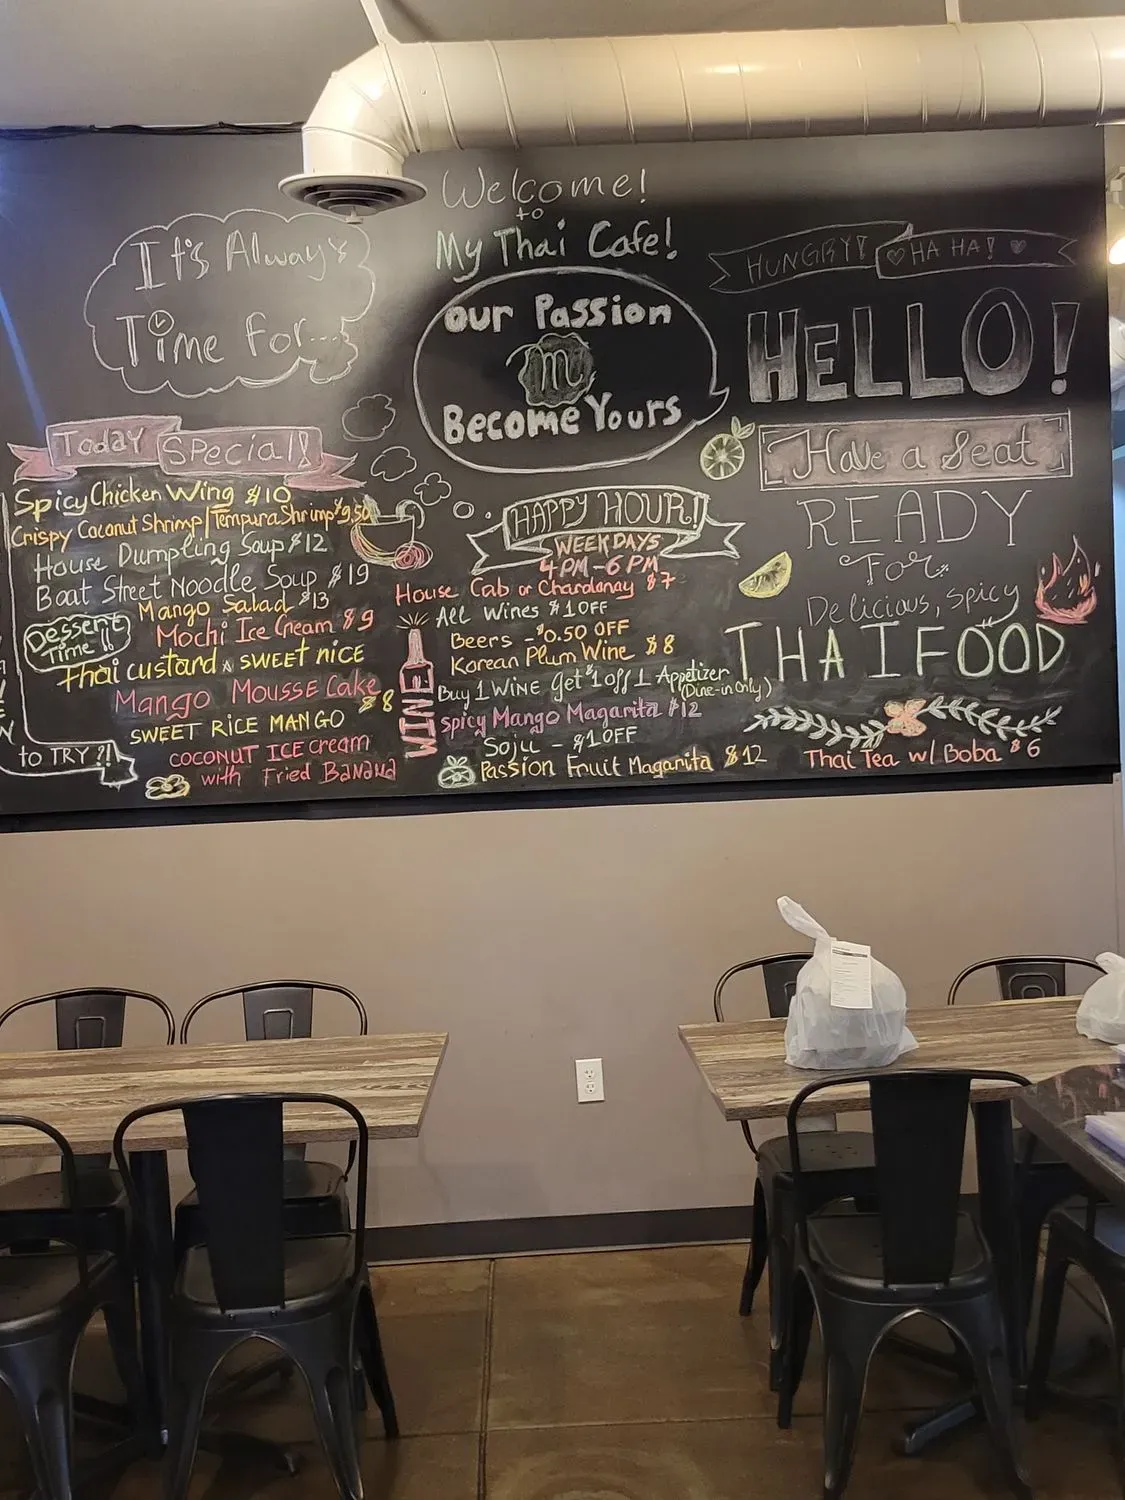 It's Always
Time For...
Welcome!
to
My Thai Cafe!
our Passion
m
Become Yours
HUNGRY! HA HA!
HELLO!
Have a Seat
READY
For
Delicious, Spicy
THAI FOOD
Thai Tea w/ Boba $6
Today Special!
Spicy Chicken Wing $10
Crispy Coconut Shrimp/Tempura Shrimp $9.50
House Dumpling Soup $12
Boat Street Noodle Soup $19
Mango Salad $13
Dessert
Time!!
Mochi Ice Cream $9
Thai custard & SWEET RICE
Mango Mousse Cake
$8
SWEET RICE MANGO
COCONUT ICE cream
with Fried BANANA
to TRY?!
HAPPY HOUR!
WEEKDAYS
4PM-6PM
House Cab or Chardonay $7
All Wines $1 OFF
Beers - $0.50 OFF
Korean Plum Wine $8
Buy 1 WINE get $1 off 1 Appetizer
(Dine-in Only)
Spicy Mango Magarita $12
Soju - $1 OFF
Passion Fruit Magarita $12
WINE